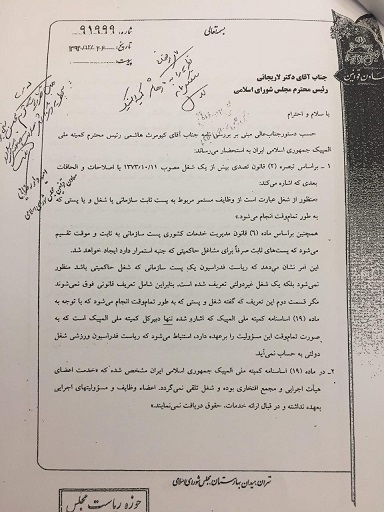 بسمه‌تعالی
شماره: ۹۱۹۹۹
تاریخ:
پیوست:
جناب آقای دکتر لاریجانی
رئیس محترم مجلس شورای اسلامی
با سلام و احترام
حسب دستور جناب‌عالی مبنی بر بررسی نامه جناب آقای کیومرث هاشمی رئیس محترم کمیته ملی
المپیک جمهوری اسلامی ایران به استحضار می‌رساند:
۱ - براساس تبصره (۲) قانون تصدی بیش از یک شغل مصوب ۱۳۷۳/۱۰/۱۱ با اصلاحات و الحاقات
بعدی که اشاره می‌کند:
«منظور از شغل عبارت است از وظایف مستمر مربوط به پست ثابت سازمانی یا شغل و یا پستی که
به طور تمام‌وقت انجام می‌شود.»
همچنین براساس ماده (۶) قانون مدیریت خدمات کشوری پست سازمانی به ثابت و موقت تقسیم
می‌شود که پست‌های ثابت صرفاً برای مشاغل حاکمیتی که جنبه استمرار دارد ایجاد خواهد شد.
این امر نشان می‌دهد که ریاست فدراسیون یک پست سازمانی که شغل حاکمیتی باشد منظور
نمی‌شود بلکه یک شغل غیردولتی تعریف شده است. بنابراین شامل تعریف قانونی فوق نمی‌شوند
مگر قسمت دوم این تعریف که گفته شغل و پستی که به طور تمام‌وقت انجام می‌شود که با توجه به
ماده (۱۹) اساسنامه کمیته ملی المپیک که اشاره شده تنها دبیرکل کمیته ملی المپیک است که به
صورت تمام‌وقت این مسؤولیت را برعهده دارد، استنباط می‌شود که ریاست فدراسیون ورزشی شغل
دولتی به حساب نمی‌آید.
۲- در ماده (۱۹) اساسنامه کمیته ملی المپیک جمهوری اسلامی ایران مشخص شده که «خدمت اعضای
هیأت اجرایی و مجمع افتخاری بوده و شغل تلقی نمی‌گردد. اعضاء وظایف و مسؤولیتهای اجرایی
بعهده نداشته و در قبال ارائه خدمات، حقوق دریافت نمی‌نمایند.»
تهران، میدان بهارستان، مجلس شورای اسلامی
حوزه ریاست مجلس